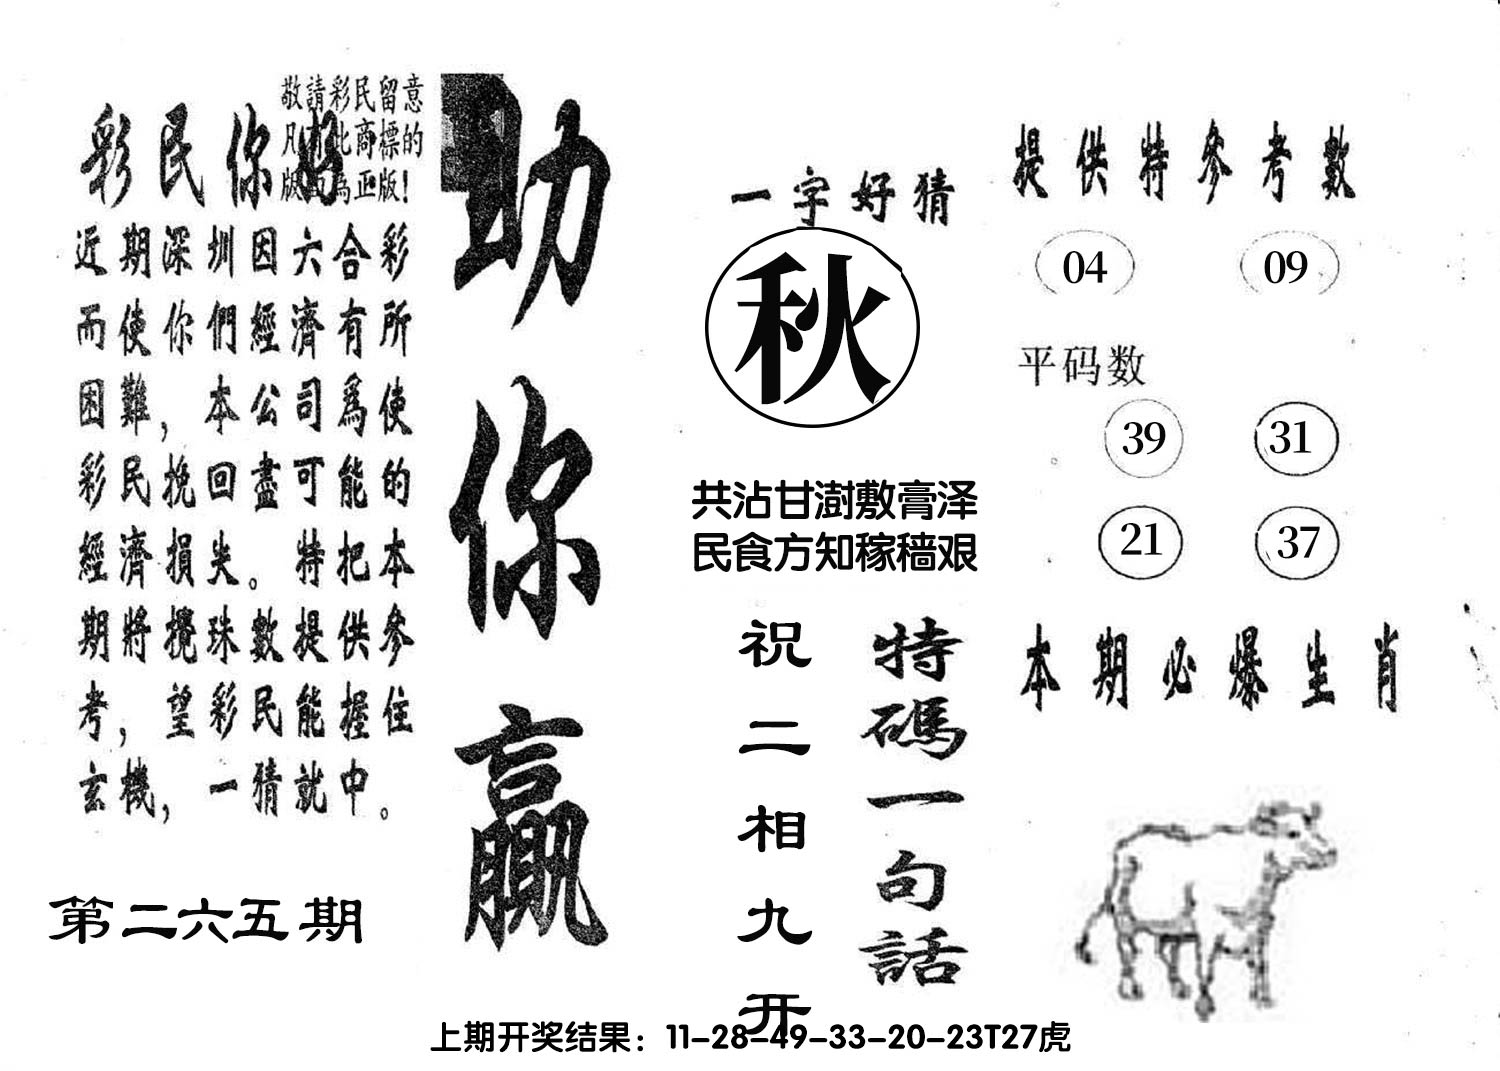 敬請彩民留意
凡有此商標的
版面為正版！
彩民你好
近期深圳因六合彩
而使你們經濟有所
困難，本公司爲使
彩民挽回盡可能的
經濟損失。特把本
期將攪珠數提供參
考，望彩民能握住
玄機，一猜就中。
第二六五期
助你贏
一字好猜
秋
共沾甘澍敷膏泽
民食方知稼穑艰
特碼一句話
祝二相九开
提供特參考數
04 09
平码数
39 31
21 37
本期必爆生肖
上期开奖结果：11-28-49-33-20-23T27虎